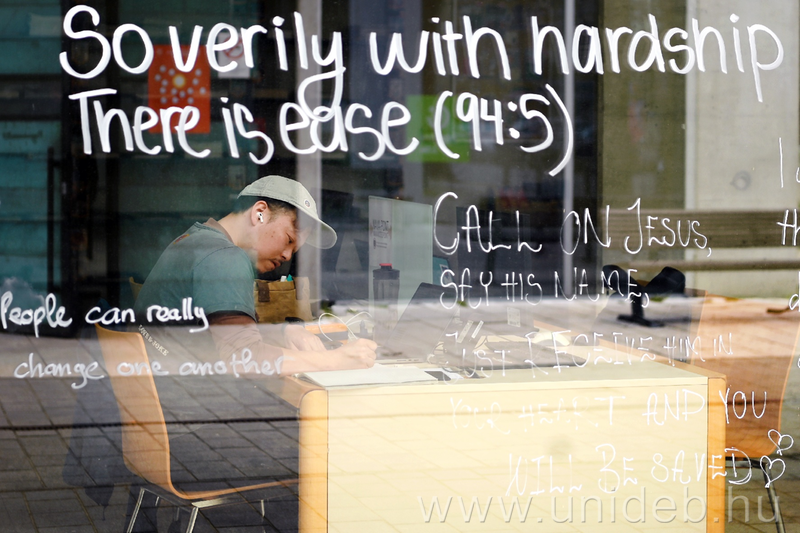 So verily with hardship
There is ease (94:5)
I
CALL ON JESUS,
SAY HIS NAME,
JUST RECEIVE HIM IN
YOUR HEART AND YOU
WILL BE SAVED
People can really
change one another
th
www.unideb.hu